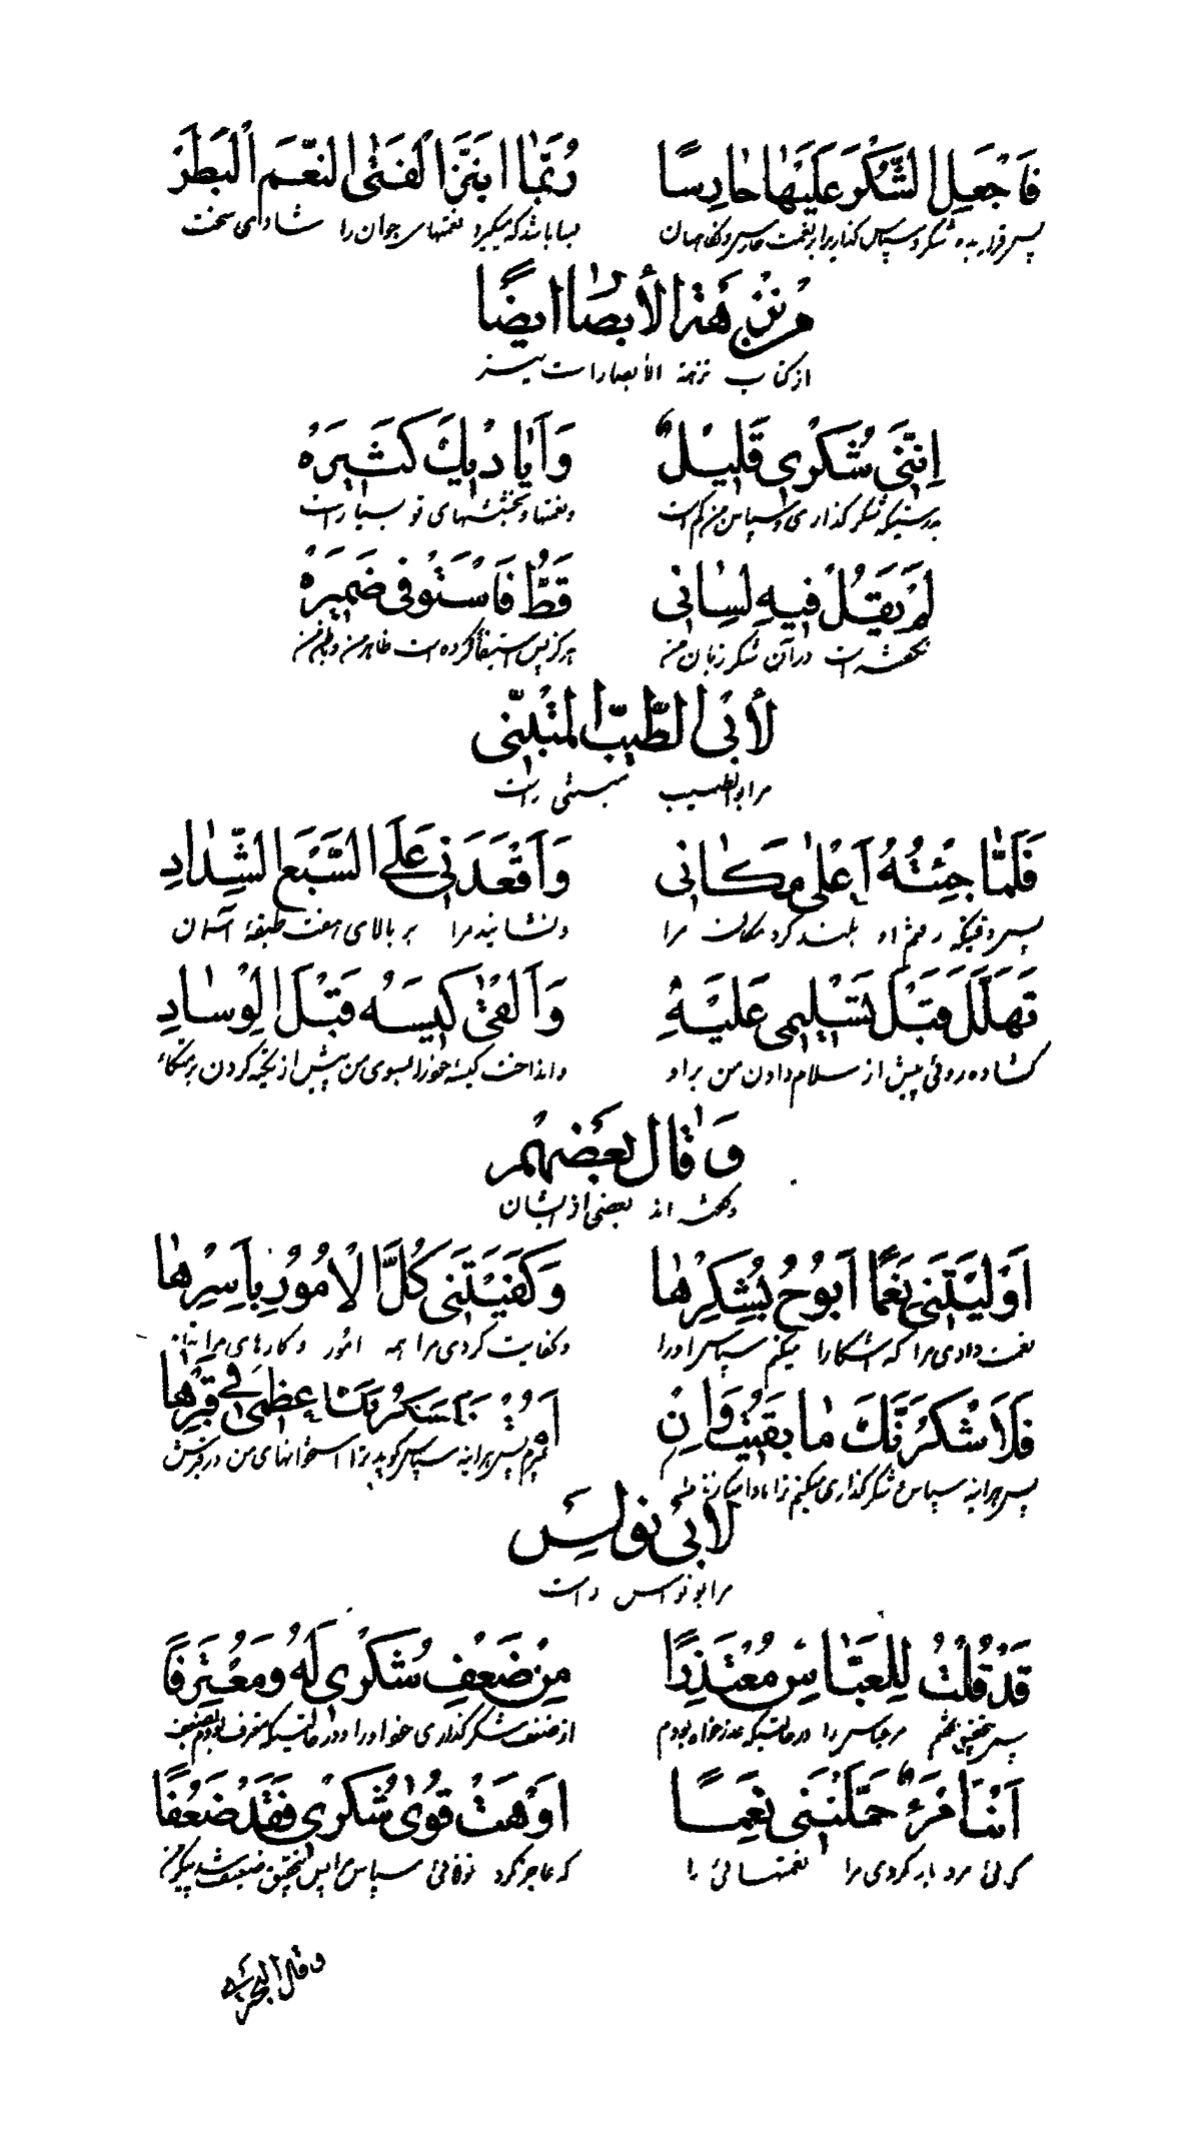 فَاجْعَلِ الشُّكْرَ عَلَيْهَا حَارِسًا رُبَّمَا ابْتَزَّ الْفَتَى النِّعَمَ الْبَطَرْ
پس قرار بده شکر و سپاس گذاری را بر نعمت حارس و نگاهبان بسا باشد که میگیرد نعمتهای جوان را شادی سخت
مِنْ نُزْهَةِ الْأَبْصَارِ أَيْضًا
از کتاب نزهة الأبصار است نیز
إِنَّنِي شُكْرِي قَلِيلٌ وَأَيَادِيكَ كَثِيرَهْ
بدرستیکه شکر گذاری و سپاس من کم است و نعمتها و بخششهای تو بسیار است
لَمْ يَقُلْ فِيهِ لِسَانِي قَطُّ فَاسْتَوْفَى ضَمِيرَهْ
نگفته است در آن شکر زبان من هرگز پس استیفا کرده است ظاهر من و باطن من
لِأَبِي الطَّيِّبِ الْمُتَنَبِّي
مر ابو الطیب متنبی راست
فَلَمَّا جِئْتُهُ أَعْلَى مَكَانِي وَأَقْعَدَنِي عَلَى السَّبْعِ الشِّدَادِ
پس وقتیکه رفتم او بلند کرد مکان مرا و نشانید مرا بر بالای هفت طبقهٔ آسمان
تَهَلَّلَ قَبْلَ تَسْلِيمِي عَلَيْهِ وَأَلْقَى كِيسَهُ قَبْلَ الْوِسَادِ
گشاده روئی پیش از سلام دادن من بر او و انداخت کیسهٔ خود را بسوی من پیش از تکیه کردن بر متکا
وَقَالَ بَعْضُهُمْ
و گفته اند بعضی از ایشان
أَوْلَيْتَنِي نِعَمًا أَبُوحُ بِشُكْرِهَا وَكَفَيْتَنِي كُلَّ الْأُمُورِ بِأَسْرِهَا
نعمت دادی مرا که آشکارا میکنم سپاس او را و کفایت کردی مرا همه امور و کارهای مرا
فَلَأَشْكُرَنَّكَ مَا بَقِيتُ وَإِنْ أَمُتْ فَلَتَشْكُرَنَّكَ أَعْظُمِي فِي قَبْرِهَا
پس هر آینه سپاس و شکر گذاری میکنم ترا مادامیکه زنده‌ام میرم پس هر آینه سپاس گوید ترا استخوانهای من در قبرش
لِأَبِي نُوَاسٍ
مر ابو نواس راست
قَدْ قُلْتُ لِلْعَبَّاسِ مُعْتَذِرًا مِنْ ضَعْفِ شُكْرِي لَهُ وَمُعْتَرِفًا
پس بتحقیق گفتم مر عباس را در حالتیکه عذر خواه بودم از ضعف شکر گذاری خود او را و در حالتیکه معترف بودم بضعف
أَنْتَ امْرُءٌ حَمَّلْتَنِي نِعَمًا أَوْهَتْ قُوَى شُكْرِي فَقَدْ ضَعُفَا
که تویی مرد بار کردی مرا نعمتهائی را که عاجز کرد توانائی سپاس مرا پس بتحقیق ضعیف شد
و قال البحتری